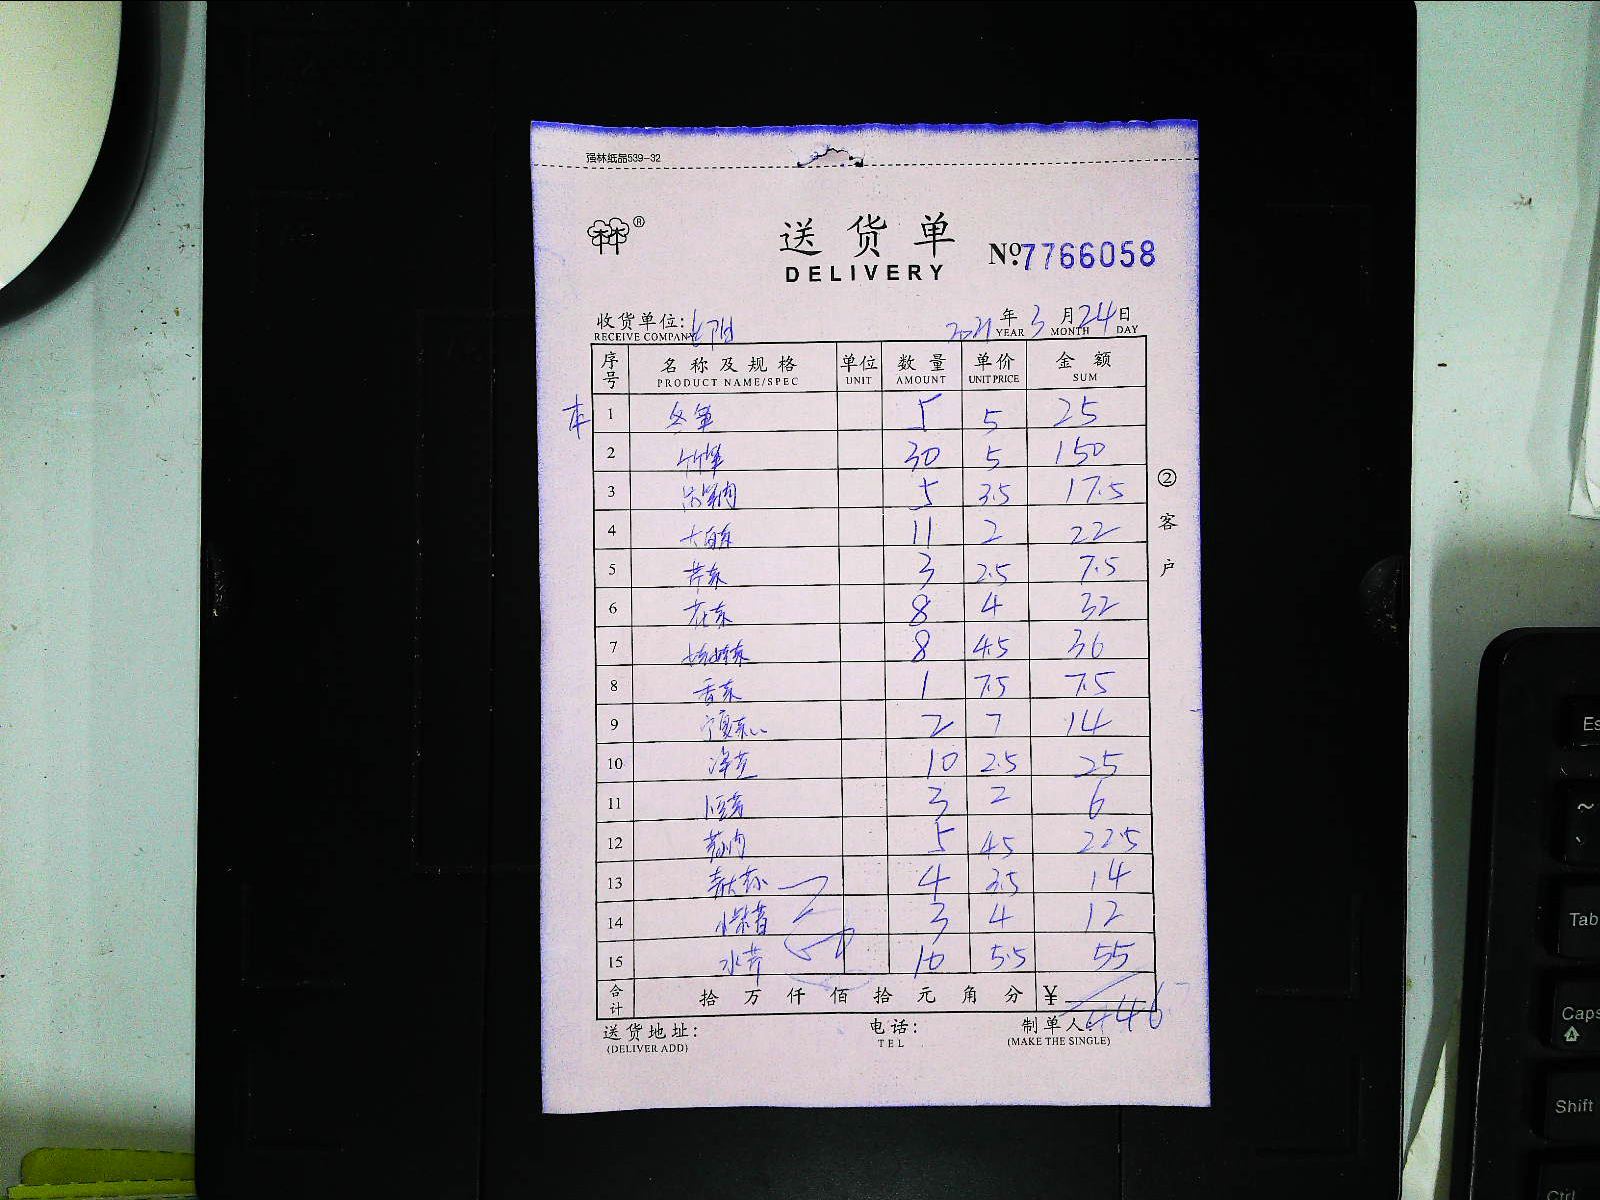 强林纸品539-32
林®
送货单
DELIVERY
№7766058
收货单位:
RECEIVE COMPANY
2021年3月24日
YEAR MONTH DAY
序号 名称及规格 单位 数量 单价 金额
PRODUCT NAME/SPEC UNIT AMOUNT UNIT PRICE SUM
1 冬笋 5 5 25
2 30 5 150
3 5 3.5 17.5
4 大白菜 11 2 22
5 芹菜 3 2.5 7.5
6 花菜 8 4 32
7 8 4.5 36
8 香菜 1 7.5 7.5
9 宁夏菜心 2 7 14
10 10 2.5 25
11 3 2 6
12 5 4.5 22.5
13 4 3.5 14
14 3 4 12
15 水芹 10 5.5 55
合计 拾万仟佰拾元角分 ¥ 446
送货地址: 电话: 制单人:
(DELIVER ADD) TEL (MAKE THE SINGLE)
②客户
Es
~
Tab
Caps
A
Shift
Ctrl